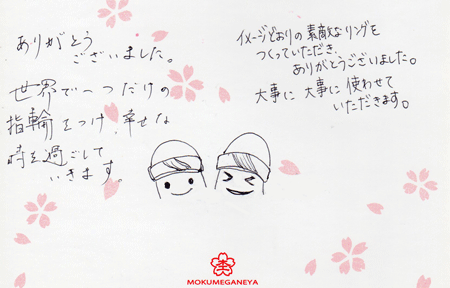 ありがとう
ございました。
世界で一つだけの
指輪をつけ、幸せな
時を過ごして
いきます。
イメージどおりの素敵なリングを
つくっていただき、
ありがとうございました。
大事に大事に使わせて
いただきます。
MOKUMEGANEYA